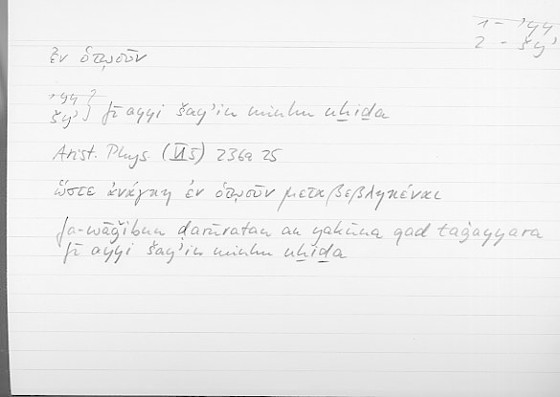 1 - ʾyy
2 - šyʾ
ἐν ὁτῳοῦν
ʾyy ?
šyʾ } fī ayyi šayʾin minhu uḫiḏa
Arist. Phys. (VI 5) 236a 25
ὥστε ἀνάγκη ἐν ὁτῳοῦν μεταβεβληκέναι
fa-wāǧibun ḍarūratan an yakūna qad taġayyara
fī ayyi šayʾin minhu uḫiḏa